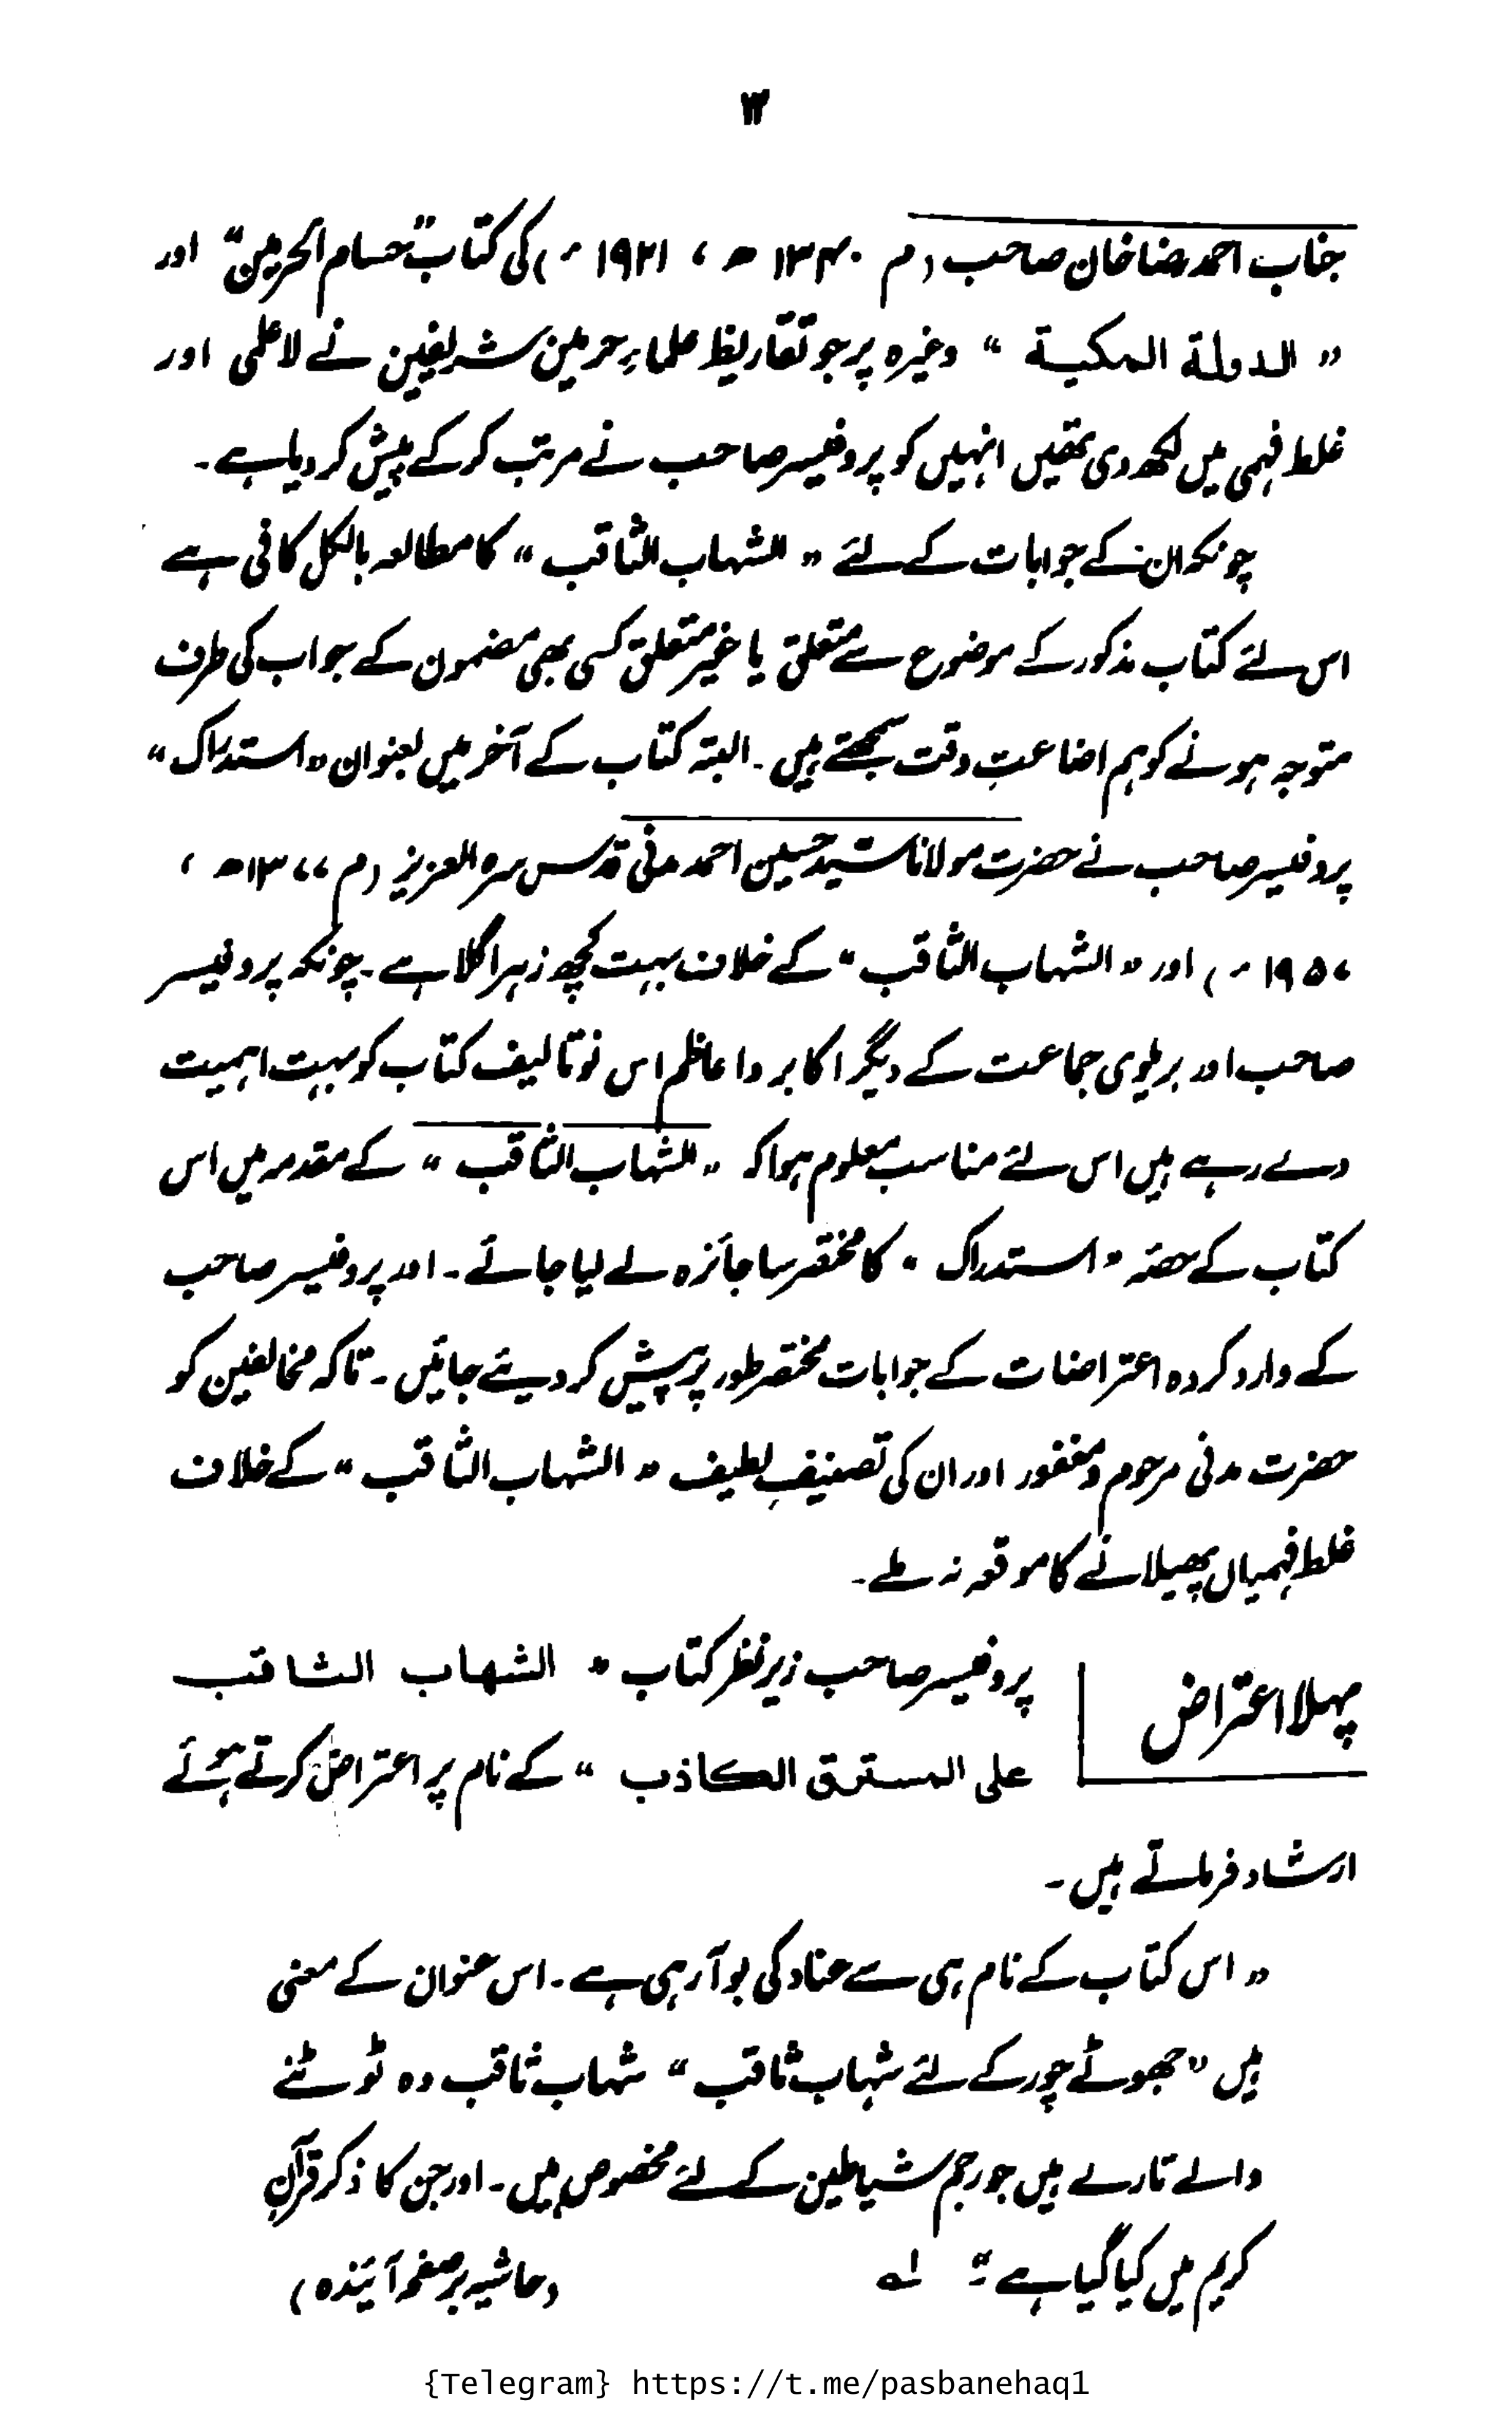 ۳
جناب احمد رضا خان صاحب (م ۱۳۴۰ ھ ، ۱۹۲۱ ء) کی کتاب "حسام الحرمین" اور
" الدولة المكية " وغیرہ پر جو تقاریظ علماءِ حرمین شریفین نے لاعلمی اور
غلط فہمی میں لکھ دی تھیں انہیں کو پروفیسر صاحب نے مرتب کر کے پیش کر دیا ہے ۔
چونکہ ان کے جوابات کے لئے " الشہاب الثاقب " کا مطالعہ بالکل کافی ہے
اس لئے کتاب مذکور کے موضوع سے متعلق یا غیر متعلق کسی بھی مضمون کے جواب کی طرف
متوجہ ہونے کو ہم اضاعتِ وقت سمجھتے ہیں ۔ البتہ کتاب کے آخر میں بعنوان "استدراک"
پروفیسر صاحب نے حضرت مولانا سید حسین احمد مدنی قدس سرہ العزیز (م ۱۳۷۷ھ ،
۱۹۵۷ ء) اور " الشہاب الثاقب " کے خلاف بہت کچھ زہر اگلا ہے ۔ چونکہ پروفیسر
صاحب اور بریلوی جماعت کے دیگر اکابر و اعاظم اس نو تالیف کتاب کو بہت اہمیت
دے رہے ہیں اس لئے مناسب معلوم ہوا کہ " الشہاب الثاقب " کے مقدمہ میں اس
کتاب کے حصّہ " استدراک " کا مختصر سا جائزہ لے لیا جائے ۔ اور پروفیسر صاحب
کے وارد کردہ اعتراضات کے جوابات مختصر طور پر پیش کر دیئے جائیں ۔ تاکہ مخالفین کو
حضرت مدنی مرحوم و مغفور اور ان کی تصنیفِ لطیف " الشہاب الثاقب " کے خلاف
غلط فہمیاں پھیلانے کا موقعہ نہ ملے ۔
پہلا اعتراض
پروفیسر صاحب زیر نظر کتاب " الشهاب الثاقب
على المسترق الكاذب " کے نام پر اعتراض کرتے ہوئے
ارشاد فرماتے ہیں ۔
" اس کتاب کے نام ہی سے عناد کی بو آ رہی ہے ۔ اس عنوان کے معنی
ہیں " جھوٹے چور کے لئے شہاب ثاقب " شہاب ثاقب وہ ٹوٹنے
والے تارے ہیں جو رجم شیاطین کے لئے مخصوص ہیں ۔ اور جن کا ذکر قرآن
کریم میں کیا گیا ہے ۔" لہ (حاشیہ بر صفحہ آئندہ)
{Telegram} https://t.me/pasbanehaq1